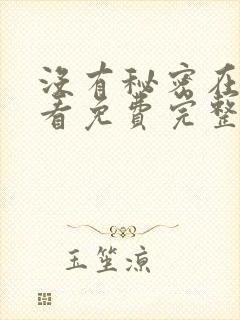 没有秘密在
看免费完整
玉笙凉